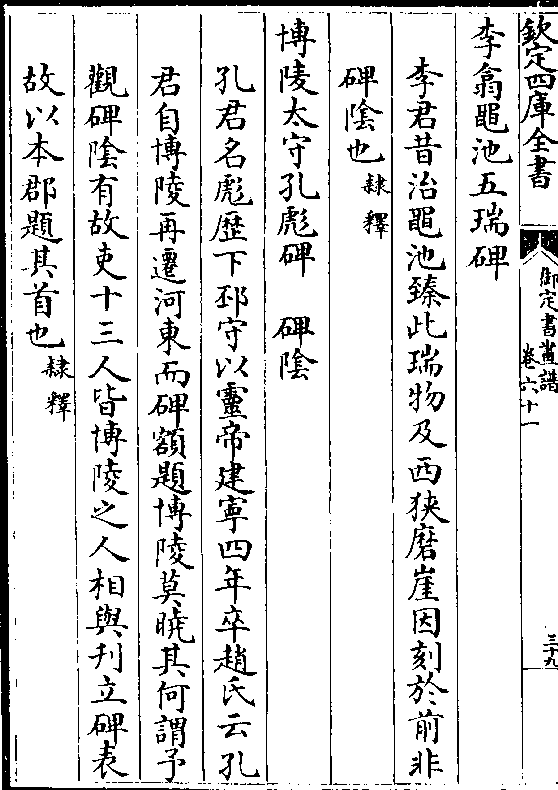 欽定四庫全書
御定書畫譜
卷六十一
三十九
李翕黽池五瑞碑
李君昔治黽池臻此瑞物及西狹磨崖因刻於前非
碑陰也隸釋
博陵太守孔彪碑 碑陰
孔君名彪歷下邳守以靈帝建寧四年卒趙氏云孔
君自博陵再遷河東而碑額題博陵莫曉其何謂予
觀碑陰有故吏十三人皆博陵之人相與刋立碑表
故以本郡題其首也隸釋